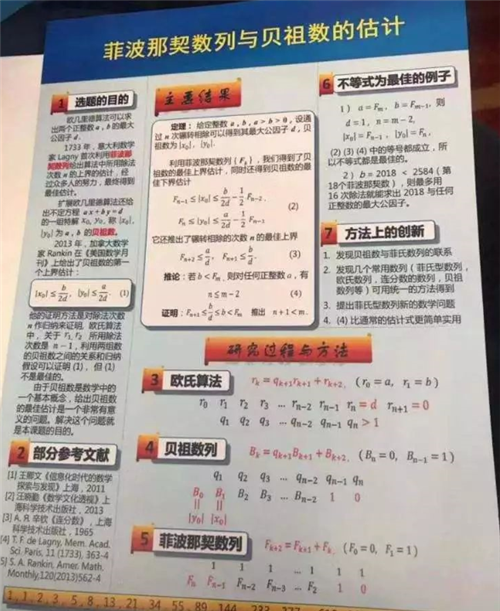 菲波那契数列与贝祖数的估计
1 选题的目的
欧几里德算法可以求
出两个正整数 a, b 的最大
公因子 d。
1733 年，意大利数学
家 Lagny 首次利用菲波那
契数列给出算法中所用除法
次数 n 的上界的估计，经
过众多人的努力，最终得到
最佳估计。
扩展欧几里德算法还给
出不定方程 ax+by=d
的一组特解 x₀, y₀，称 |x₀|,
|y₀| 为 a, b 的贝祖数。
2013 年，加拿大数学
家 Rankin 在《美国数学月
刊》上给出了贝祖数的第一
个上界估计：
|x₀| ≤ b/2d, |y₀| ≤ a/2d (1)
他的证明方法是对除法次数
n 作归纳来证明。欧氏算法
中，关于 r₁, r₂ 所用除法
次数是 n − 1，利用两组数
的贝祖数之间的关系和归纳
假设可以证明 (1)，但 (1)
不是最佳的。
由于贝祖数是数学中的
一个基本概念，给出贝祖数
的最佳估计是一个非常有意
义的问题。解决这个问题就
是本课题的目的。
2 部分参考文献
[1] 王
《信息化时代的数学
探索与发现》上海，2011
[2] 汪晓勤《数学文化透视》上
海科学技术出版，2013
[3] A. Я. 辛钦《连分数》，上海
科学技术出版，1965
[4] T. F. de Lagny, Mem. Acad.
Sci. Paris, 11 (1733), 363-4
5] S. A. Rankin, Amer. Math.
Monthly,120(2013)562-4
主要结果
定理：给定整数 a, b, a > b > 0，设通
过 n 次辗转相除可以得到其最大公因子 d，贝
祖数为 |x₀|, |y₀|。
利用菲波那契数列 {Fₖ}，我们得到了贝
祖数的最佳上界估计，同时还得到贝祖数的最
佳下界估计
Fₙ₋₁ ≤ |x₀| ≤ b/2d − 1/2 Fₙ₋₂,
(2)
Fₙ ≤ |y₀| ≤ a/2d − 1/2 Fₙ₋₁
它还推出了辗转相除的次数 n 的最佳上界
Fₙ₊₂ ≤ a/d, Fₙ₊₁ ≤ b/d. (3)
推论：若 b < Fₘ，则对任何正整数 a，有
n ≤ m − 2 (4)
证明：Fₙ₊₁ ≤ b/d ≤ b < Fₘ 推出 n + 1 < m.
研究过程与方法
3 欧氏算法 rₖ = qₖ₊₁rₖ₊₁ + rₖ₊₂, (r₀ = a, r₁ = b)
r₀ r₁ r₂ r₃ … rₙ₋₂ rₙ₋₁ rₙ = d rₙ₊₁ = 0
q₁ q₂ q₃ … qₙ₋₂ qₙ₋₁ qₙ > 1
4 贝祖数列 Bₖ = qₖ₊₁Bₖ₊₁ + Bₖ₊₂, (Bₙ = 0, Bₙ₋₁ = 1)
q₁ q₂ q₃ … qₙ₋₂ qₙ₋₁ qₙ
B₀ B₁ B₂ B₃ … Bₙ₋₂ 1 0
|| ||
|y₀| |x₀|
5 菲波那契数列 Fₖ₊₂ = Fₖ₊₁ + Fₖ, (F₀ = 0, F₁ = 1)
1 1 1 … 1 1 1
Fₙ Fₙ₋₁ Fₙ₋₂ Fₙ₋₃ … F₂ 1 0
6 不等式为最佳的例子
1） a = Fₘ, b = Fₘ₋₁, 则
d = 1, n = m − 2,
|x₀| = Fₙ₋₁, |y₀| = Fₙ.
(2) (3) (4) 中的等号都成立，所
以不等式都是最佳的。
2） b = 2018 < 2584 (第
18个菲波那契数)，则最多用
16 次除法就能求出 2018 与任何
正整数的最大公因子。
7 方法上的创新
1. 发现贝祖数与菲氏数列的联系
2. 发现几个常用数列（菲氏型数列，
欧氏数列，连分数的数列，贝祖
数列等）可用统一的方法得到
3. 提出菲氏型数列新的数学问题
4. (4) 比通常的估计式更简单实用
1, 1, 2, 3, 5, 8, 13, 21, 34, 55, 89, 144, 233, 377